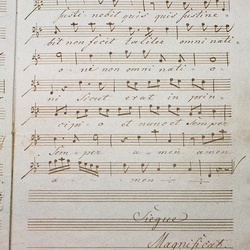 justi nobis quis quis sustine
bit non fecit taliter omni nati
o ne non omni nati o
ni Sicut erat in prin
cipio et nunc et semper
sem per a men amen
a men
Siegue
Magnificat